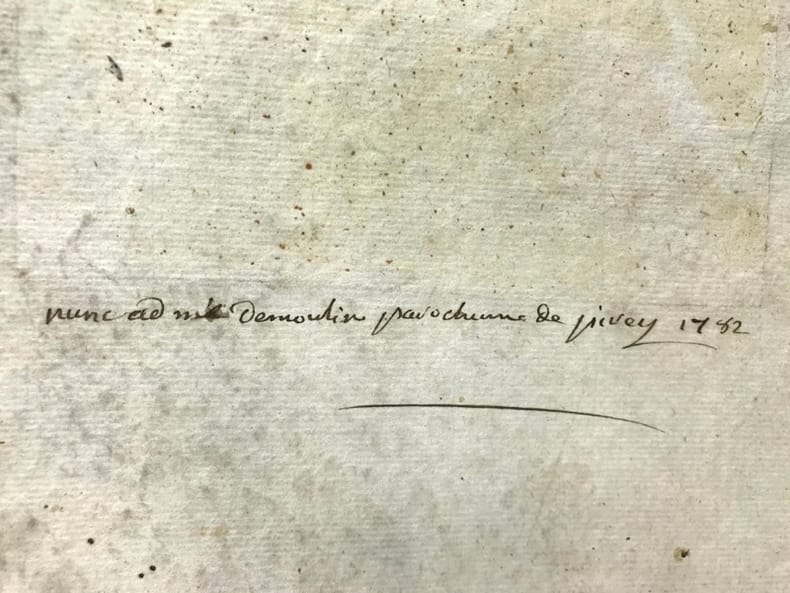 nunc ad Demoulin parochum de jivey 1782